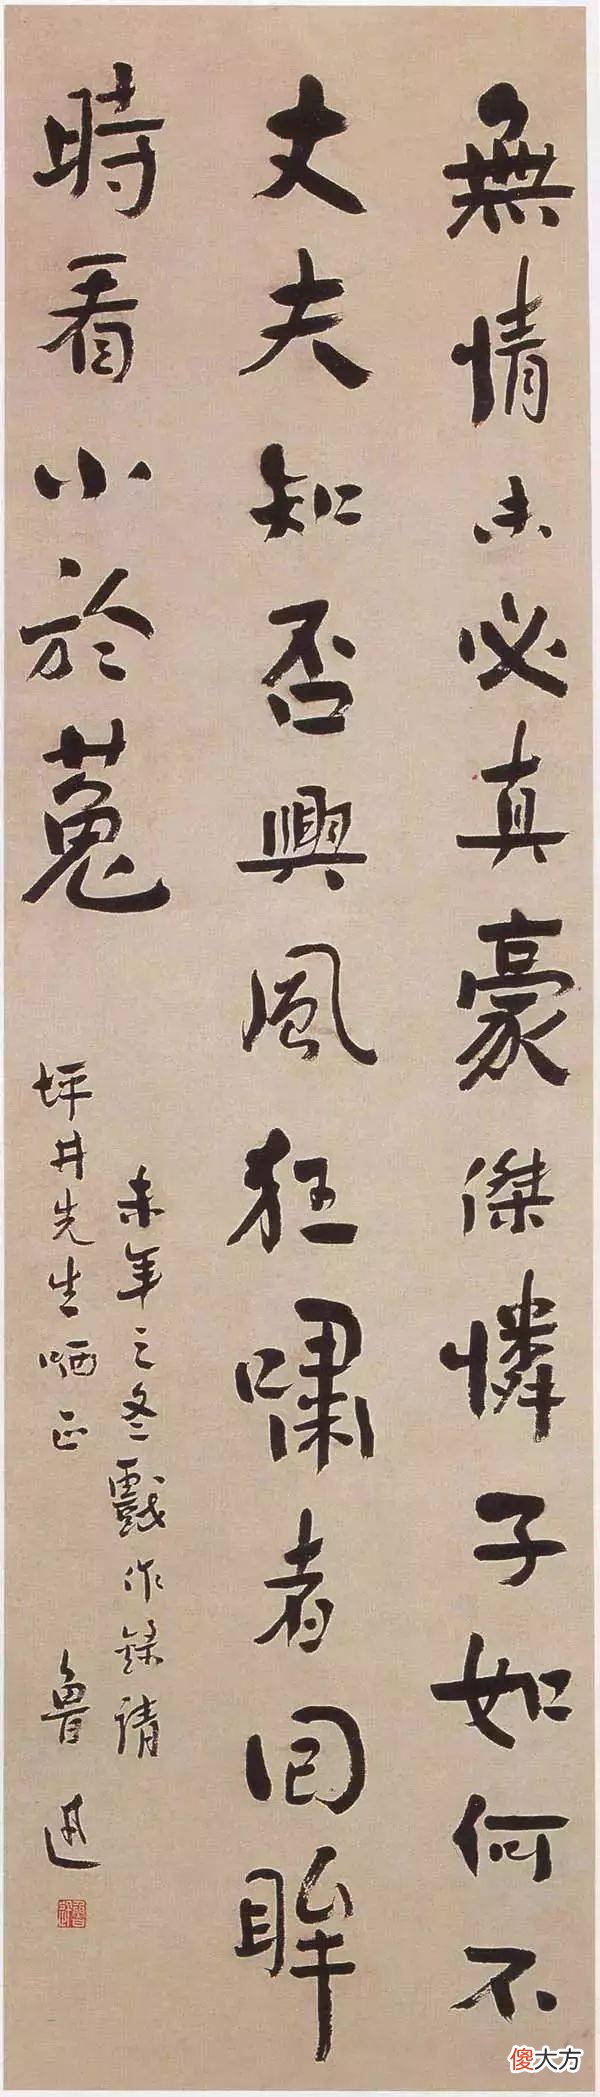 無情未必真豪傑憐子如何不
丈夫知否興風狂嘯者回眸
時看小於菟
未年之冬戲作錄請
坪井先生哂正
魯迅
傻大方